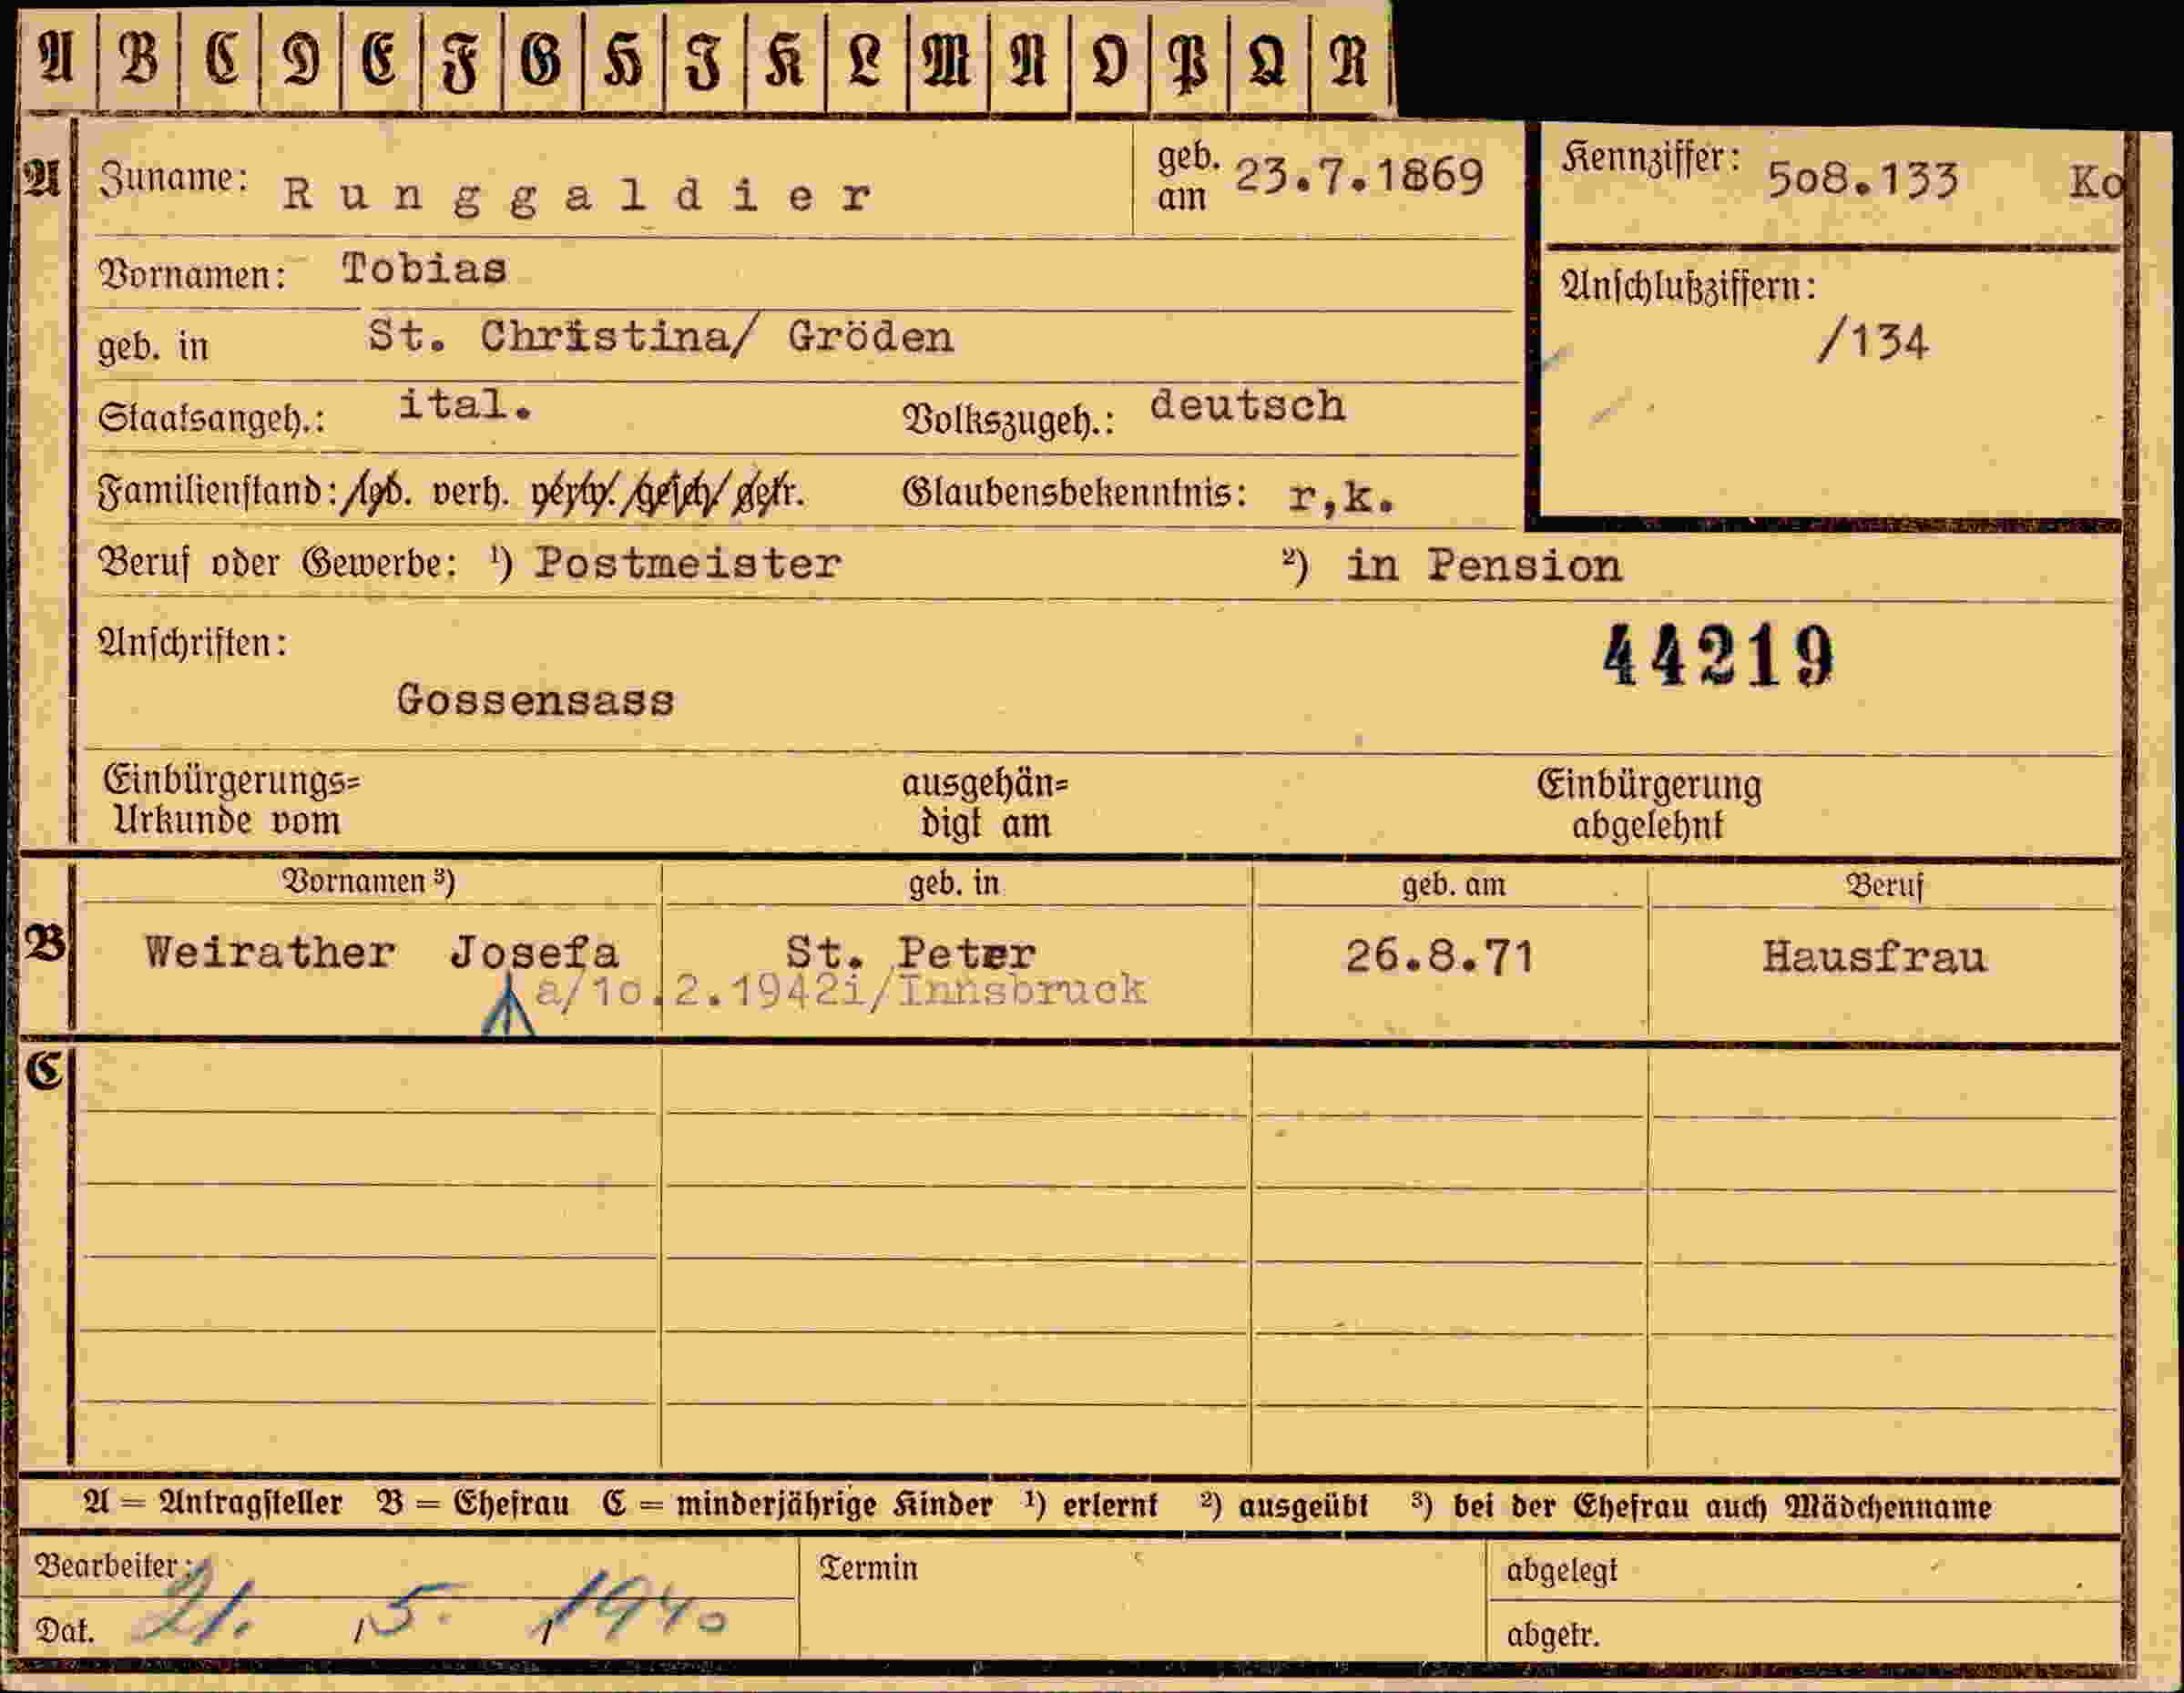 A B C D E F G H I K L M N O P Q R
A Zuname: Runggaldier geb. am 23.7.1869 Kennziffer: 508.133 Ko
Vornamen: Tobias
Anschlußziffern:
geb. in St. Christina/ Gröden /134
Staatsangeh.: ital. Volkszugeh.: deutsch
Familienstand: led. verh. verw. gesch. getr. Glaubensbekenntnis: r,k.
Beruf oder Gewerbe: ¹) Postmeister ²) in Pension
Anschriften: 44219
Gossensass
Einbürgerungs= ausgehän= Einbürgerung
Urkunde vom digt am abgelehnt
Vornamen ³) geb. in geb. am Beruf
B Weirather Josefa St. Peter 26.8.71 Hausfrau
a/10.2.1942i/Innsbruck
C
A = Antragsteller B = Ehefrau C = minderjährige Kinder ¹) erlernt ²) ausgeübt ³) bei der Ehefrau auch Mädchenname
Bearbeiter: Termin abgelegt
Dat. 21. 5. 1940 abgetr.